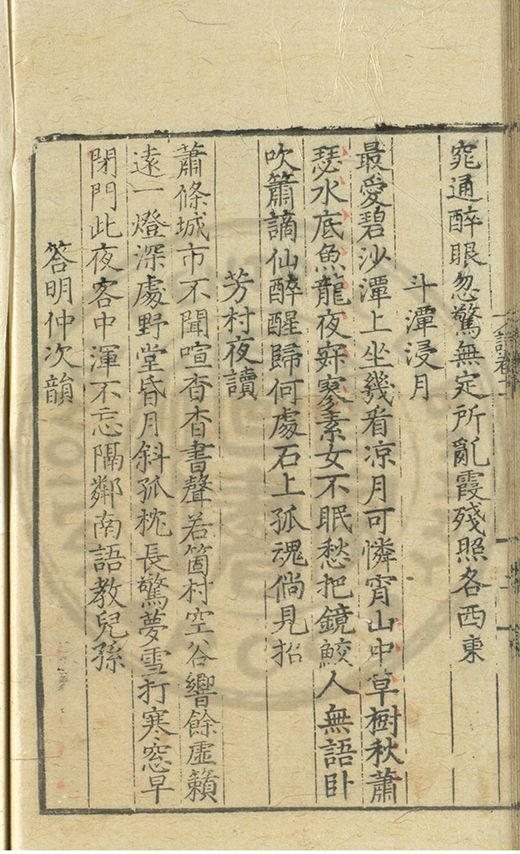 窕通醉眼忽驚無定所亂霞殘照各西東
斗潭浸月
最愛碧沙潭上坐幾看凉月可憐宵山中草樹秋蕭
瑟水底魚龍夜寂寥素女不眠愁把鏡鮫人無語卧
吹簫謫仙醉醒歸何處石上孤魂倘見招
芳村夜讀
蕭條城市不聞喧杳杳書聲若箇村空谷響餘虛籟
遠一燈深處野堂昏月斜孤枕長驚夢雪打寒窓早
閉門此夜客中渾不忘隔鄰南語教兒孫
答明仲次韻